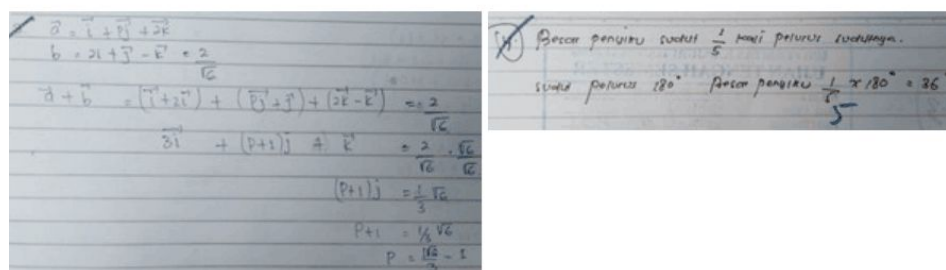 a⃗ = i⃗ + pj⃗ + 2k⃗
b = 2i + j⃗ - k⃗ = 2/√6
a⃗ + b⃗ = (i⃗ + 2i⃗) + (pj⃗ + j⃗) + (2k⃗ - k⃗) = 2/√6
3i⃗ + (p+1)j + k⃗ = 2/√6 . √6/√6
(p+1)j = 1/3 √6
p+1 = 1/3 √6
p = √6/3 - 1
Besar penyiku sudut 1/5 kali pelurus sudutnya.
sudut pelurus 180° Besar penyiku 1/5 x 180° = 36
5